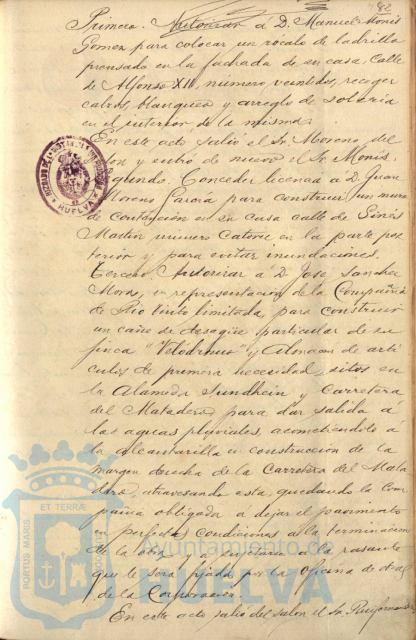 82
Primero. Autorizar á D. Manuel Monís
Gomez para colocar un zócalo de ladrillo
prensado en la fachada de su casa calle
de Alfonso XII, número veintidos, recoger
cabros, blanqueo y arreglo de solería
en el interior de la misma.
En este acto salió el Sr. Moreno del
y entró de nuevo el Sr. Monís.
Segundo. Conceder licencia á D. Juan
Moreno García para construir un muro
de contención en su casa calle de Ginés
Martín número catorce en la parte pos
terior y para evitar inundaciones.
Tercero. Autorizar á D. José Sanchez
Mora, en representación de la Compañía
de Rio Tinto limitada, para construir
un caño de desagüe particular de su
finca "Velódromo" y Almacen de artí
culos de primera necesidad, sitos en
la Alameda Sundheim y Carretera
del Matadero para dar salida á
las aguas pluviales, acometiéndole á
la alcantarilla en construcción de la
margen derecha de la Carretera del Mata
dero, atravesando esta, quedando la Com
pañia obligada a dejar el pavimento
en perfectas condiciones a la terminación
de la obra y a sujetarse a la rasante
que le será fijada por la oficina de
de la Corporación.
En este acto salió del salon el Sr.
HUELVA
PORTUS MARIS
ET TERRÆ
CUSTODIA
Ayuntamiento de
HUELVA